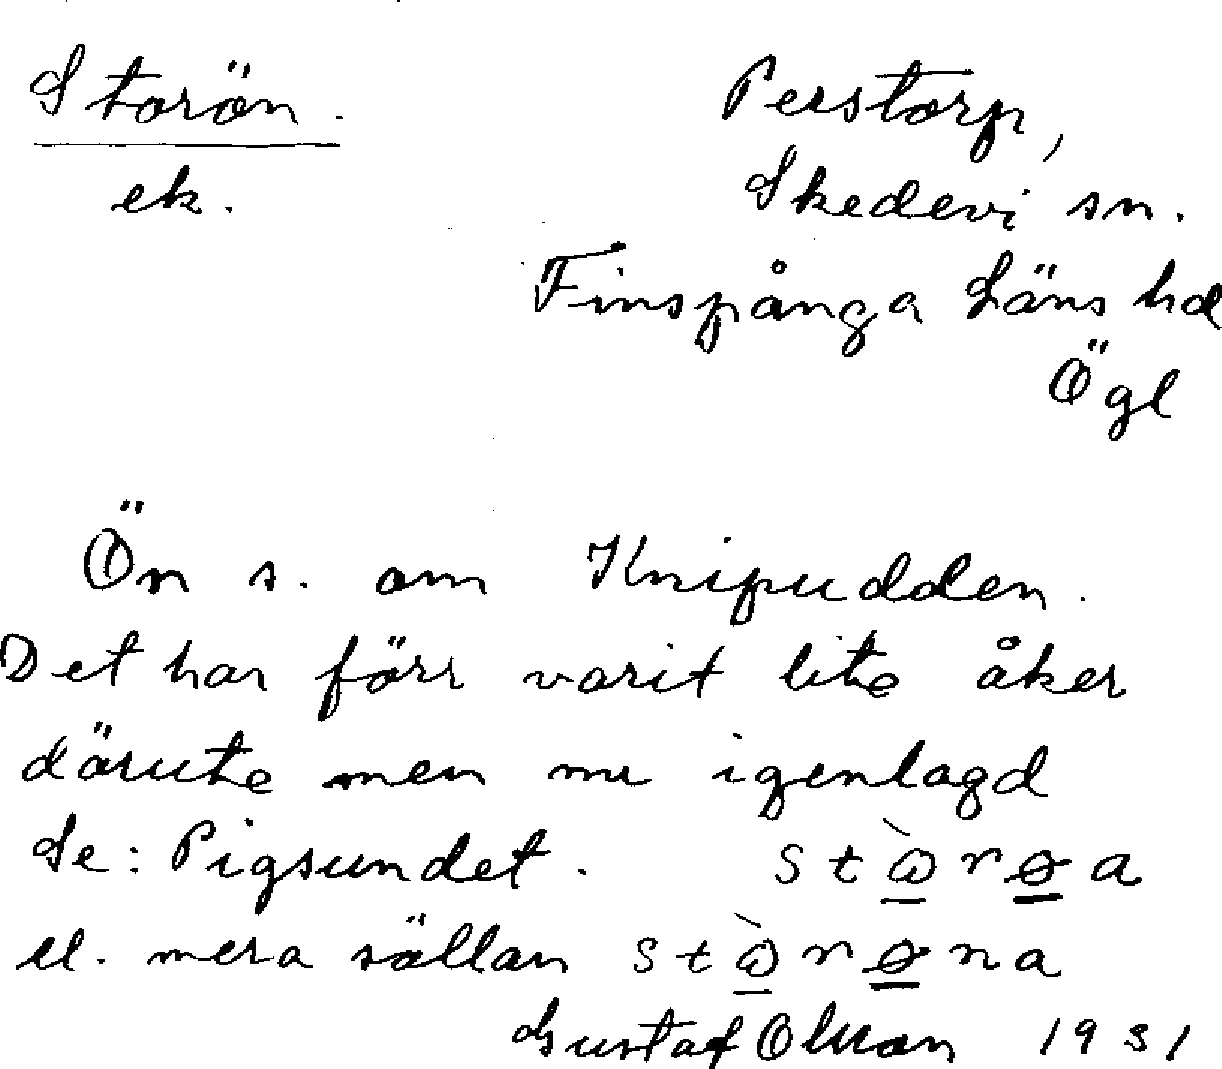 Storön.
ek.
Perstorp,
Skedevi sn.
Finspånga Läns hd
Ögl
Ön s. om Knipudden.
Det har förr varit lite åker
därute men nu igenlagd
Se: Pigsundet. stòrøa
el. mera sällan stòrøna
Gustaf Olsson 1931